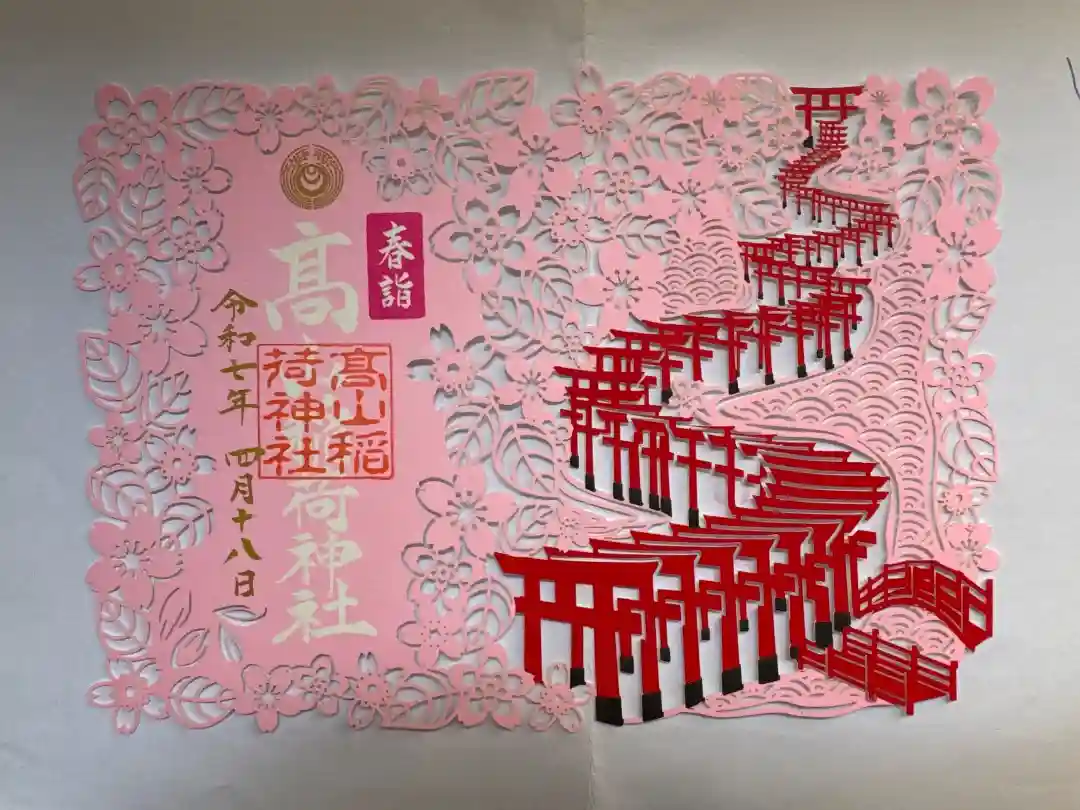 春詣
髙山稲荷神社
髙山稲
荷神社
令和七年 四月十八日